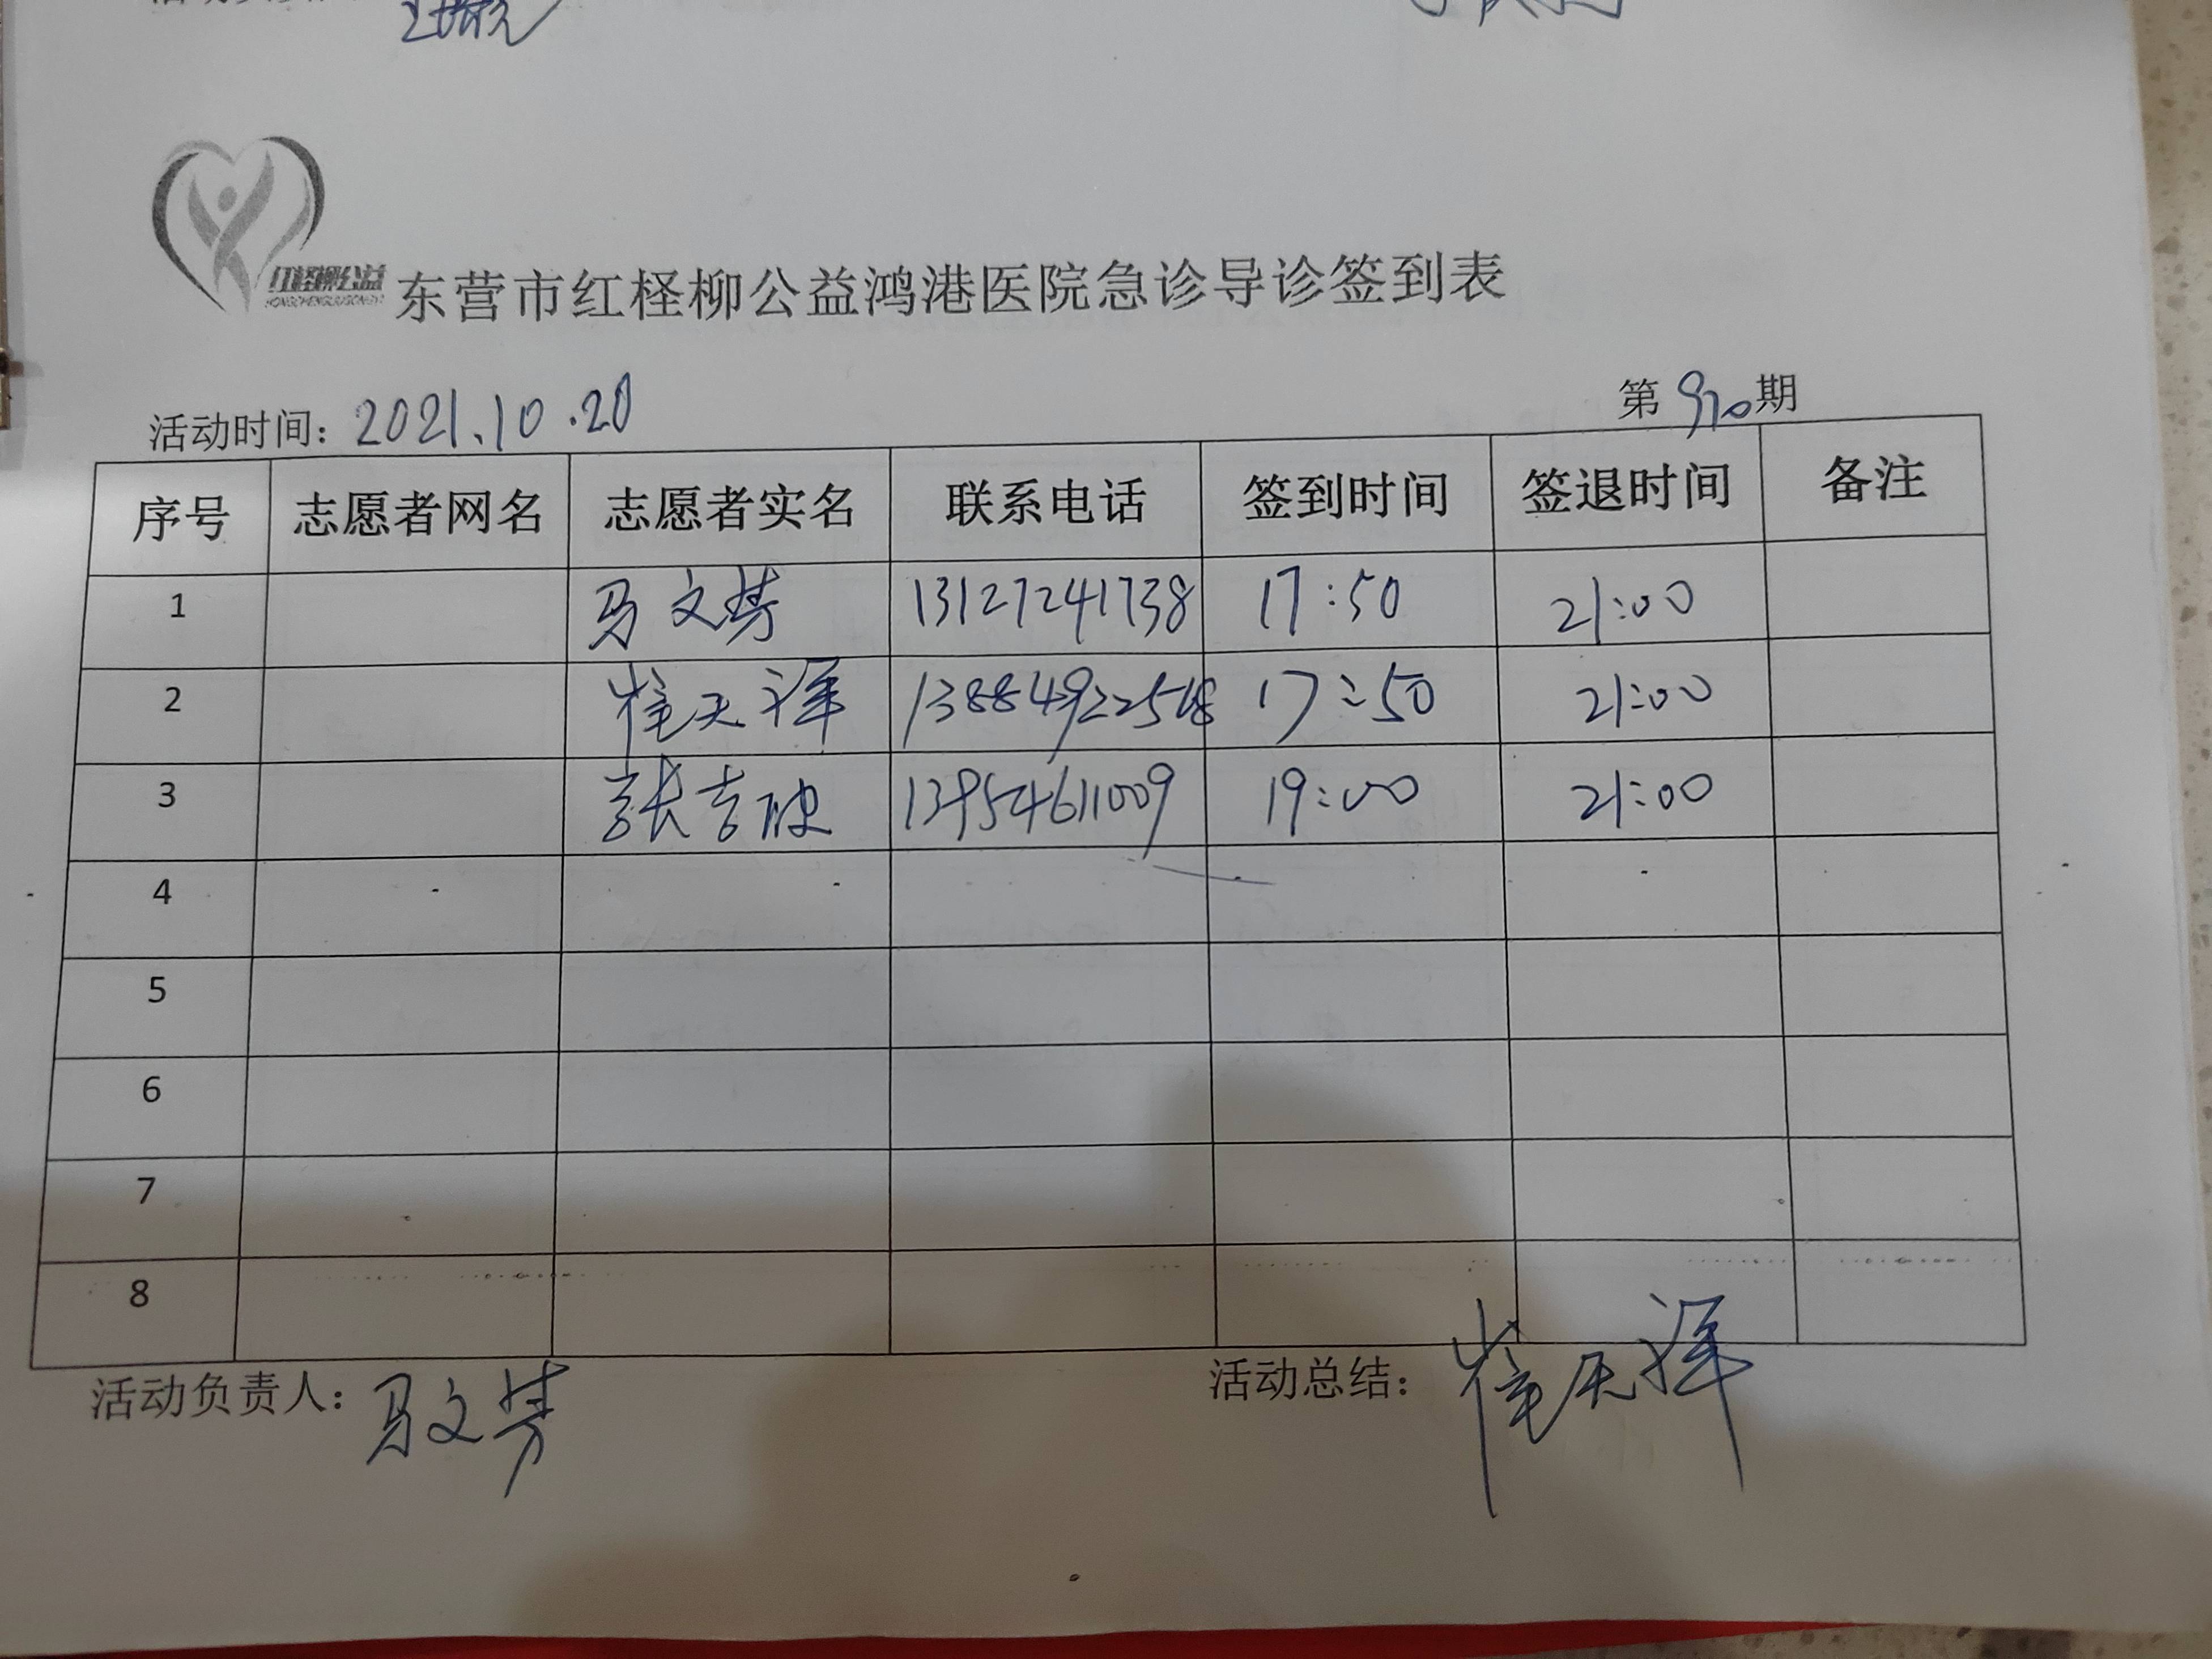 红柽柳公益
东营市红柽柳公益鸿港医院急诊导诊签到表
活动时间: 2021.10.20 第 970 期
序号 志愿者网名 志愿者实名 联系电话 签到时间 签退时间 备注
1 马文芳 13127241738 17:50 21:00
2 崔天祥 17:50 21:00
3 张吉 13954611009 19:00 21:00
4
5
6
7
8
活动负责人: 马文芳 活动总结: 崔天祥